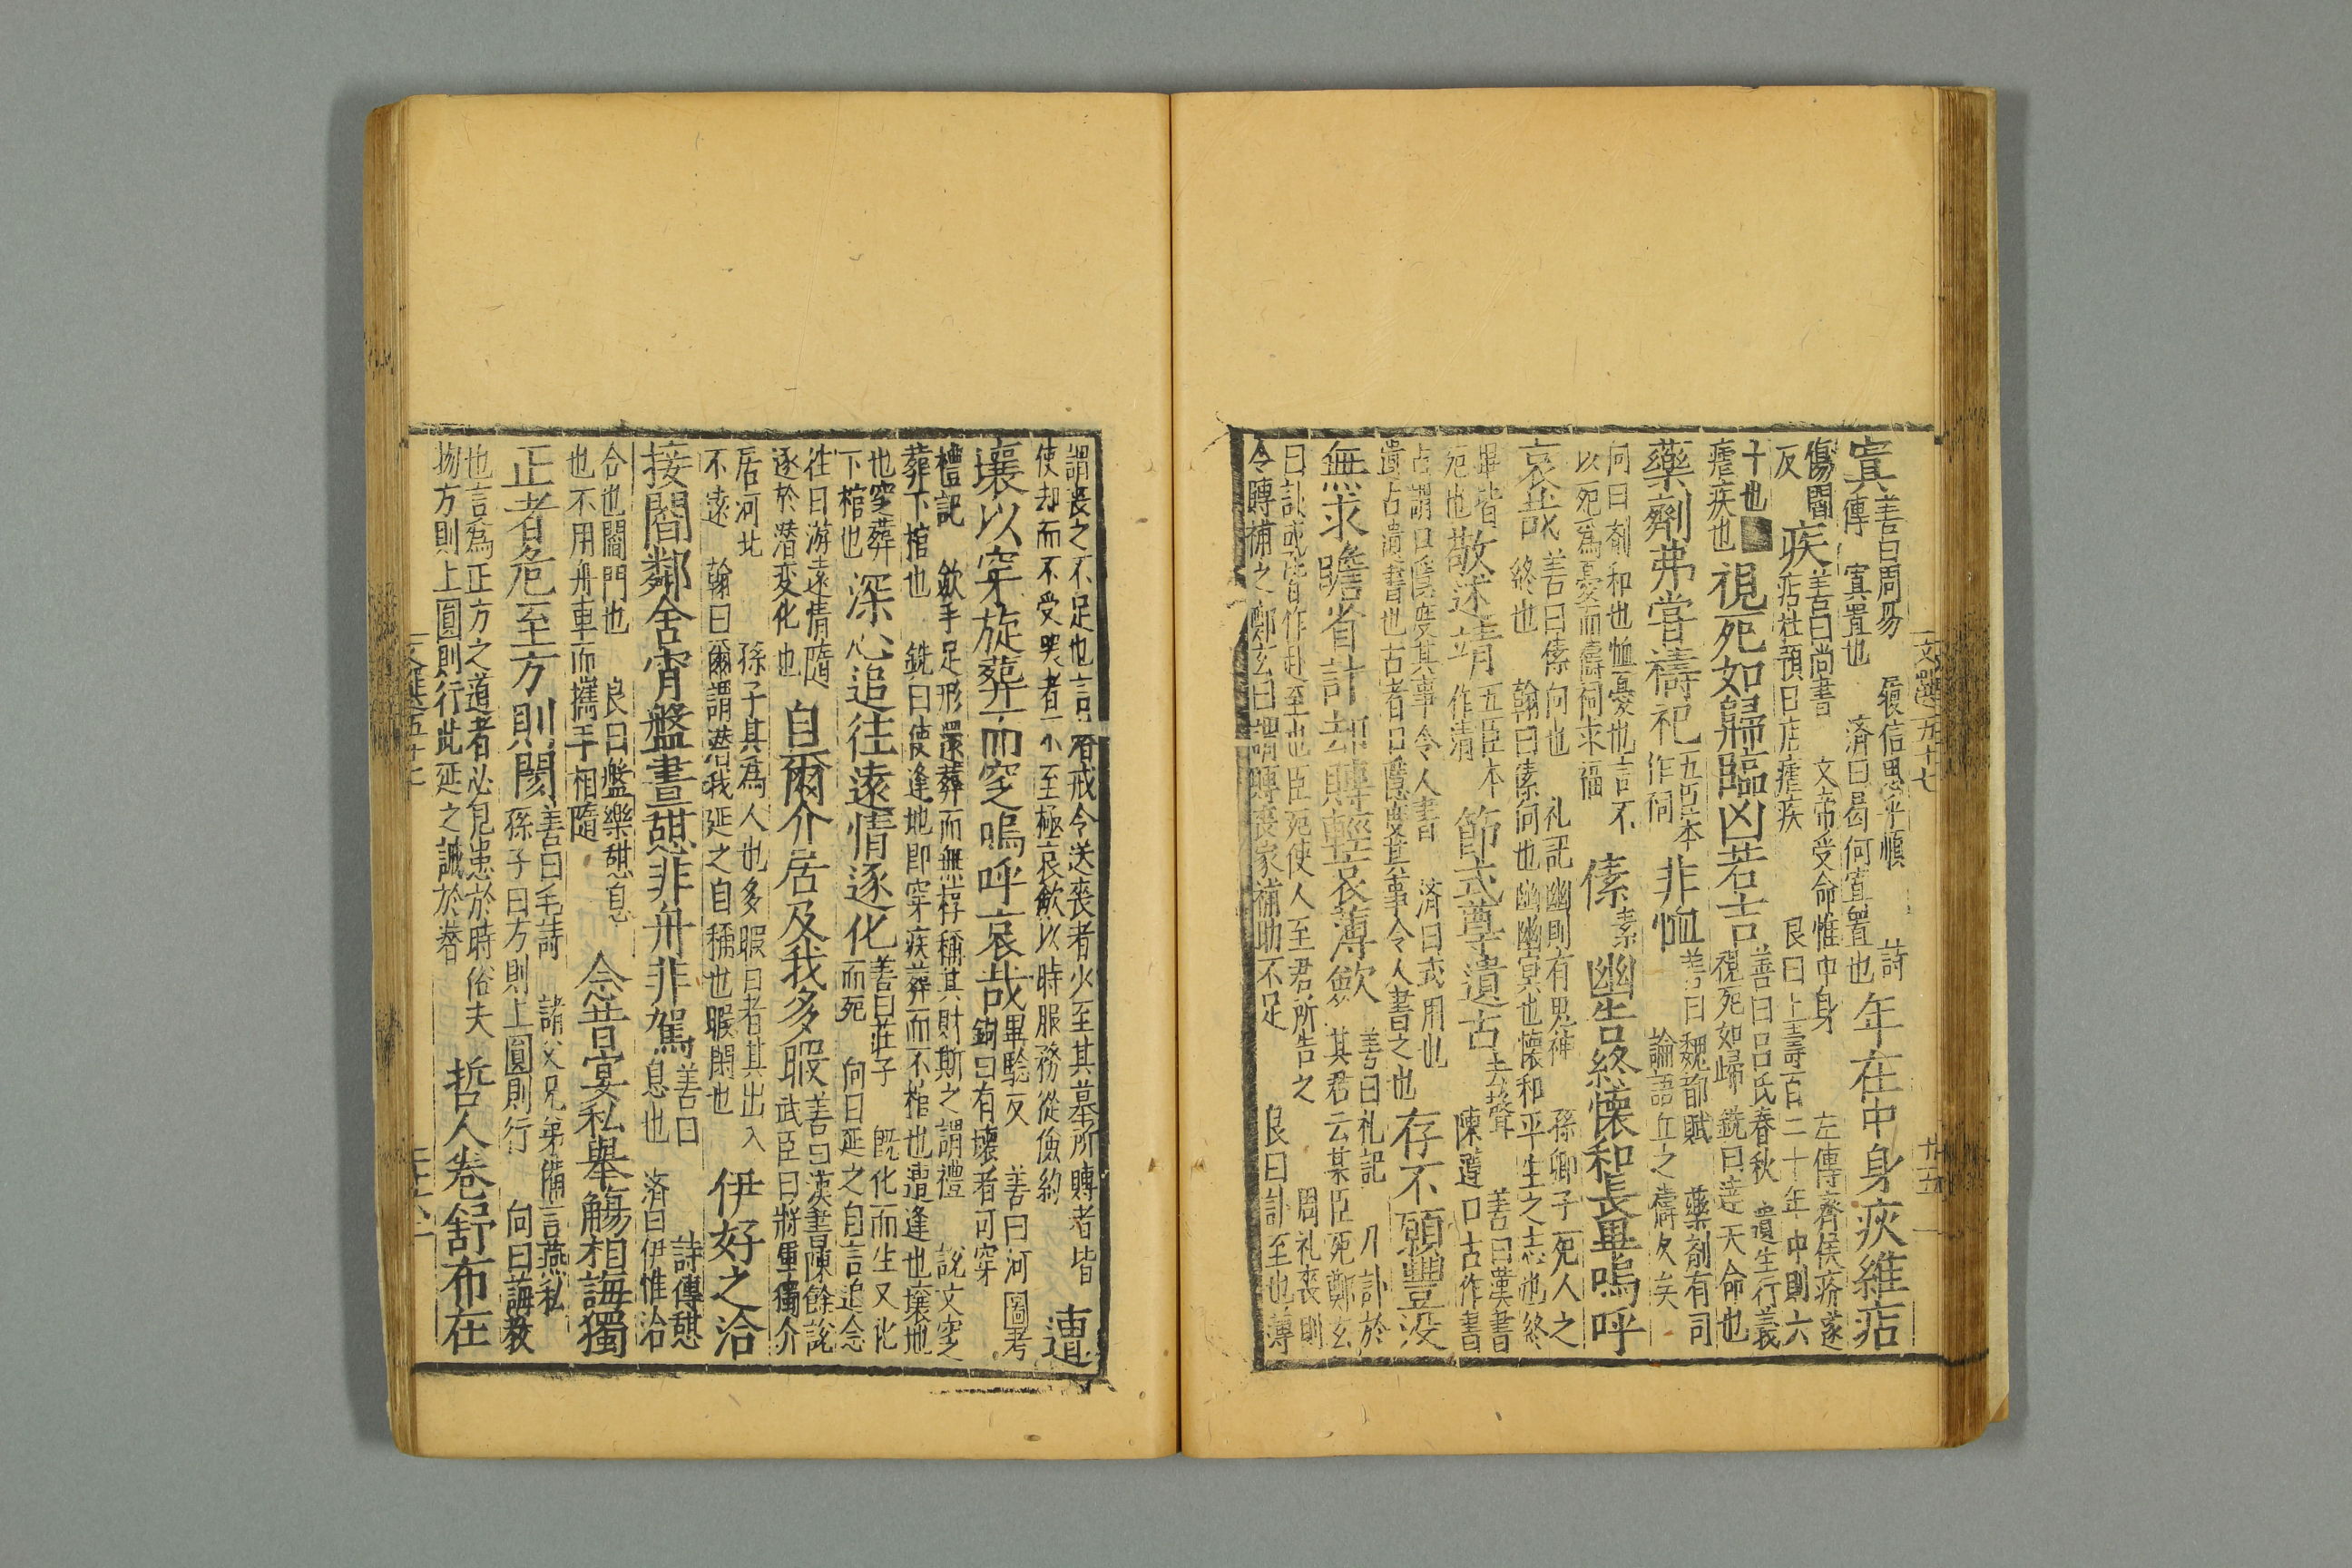 文選五十七
廿五
寘善曰周易 履信思乎順 詩
傳 寘置也 濟曰曷何寘置也
年在中身疢維痁
傷閻
反
疾善曰尚書 文帝受命惟中身 左傳齊侯疥遂
痁杜預曰痁瘧疾 良曰上壽百二十年中則六
十也
瘧疾也
視死如歸臨凶若吉善曰呂氏春秋 遺生行義
視死如歸 銑曰達天命也
藥劑弗嘗禱祀五臣本
作祠
非恤善曰魏都賦 藥劑有司
論語丘之禱久矣
向曰劑和也恤憂也言不
以死爲憂而禱祠求福
傃素幽告終懷和長畢嗚呼
哀哉善曰傃向也 礼記幽則有鬼神 孫卿子死人之
終也 翰曰傃向也幽幽冥也懷和平生之志也終
畢皆
死也
敬述靖五臣本
作清
節式尊遺古去聲 善曰漢書
陳遵口古作書
占謂口隱度其事令人書 濟曰式用也
遺占遺書也古者口隱度其事令人書之也
存不願豐没
無求贍省訃却賻輕哀薄斂善曰礼記 凡訃於
其君云某臣死鄭玄
曰訃或皆作赴至也臣死使人至君所告之 周礼喪則
令賻補之鄭玄曰謂賻喪家補助不足 良曰訃至也薄
謂喪之不足也言有戒令送喪者火至其墓所賻者皆
使却而不受哭者不至極哀歛以時服務從儉約
遭
壤以穿旋葬而窆嗚呼哀哉畢驗反 善曰河圖考
鉤曰有壤者可穿
禮記 歛手足形還葬而無椁稱其財斯之謂禮 説文窆
葬下棺也 銑曰使逢地即穿疾葬而不棺也遭逢也壤地
也窆葬
下棺也
深心追往遠情逐化善曰莊子 既化而生又化
而死 向曰延之自言追念
往日游遠情隨
逐於潜変化也
自爾介居及我多暇善曰漢書陳餘說
武臣曰將軍獨介
居河北 孫子其為人也多暇日者其出入
不遠 翰曰爾謂潜我延之自稱也暇閑也
伊好之洽
接閻鄰舍宵盤晝憩非舟非駕善曰 詩傳憩
息也 濟曰伊惟洽
合也閻門也 良曰盤樂憩息
也不用舟車而攜手相隨
念昔宴私舉觴相誨獨
正者危至方則閡善曰毛詩 諸父兄弟備言燕私
孫子曰方則止圓則行 向曰誨教
也言爲正方之道者必見患於時俗夫
物方則上圓則行此延之誠於潜
哲人卷舒布在